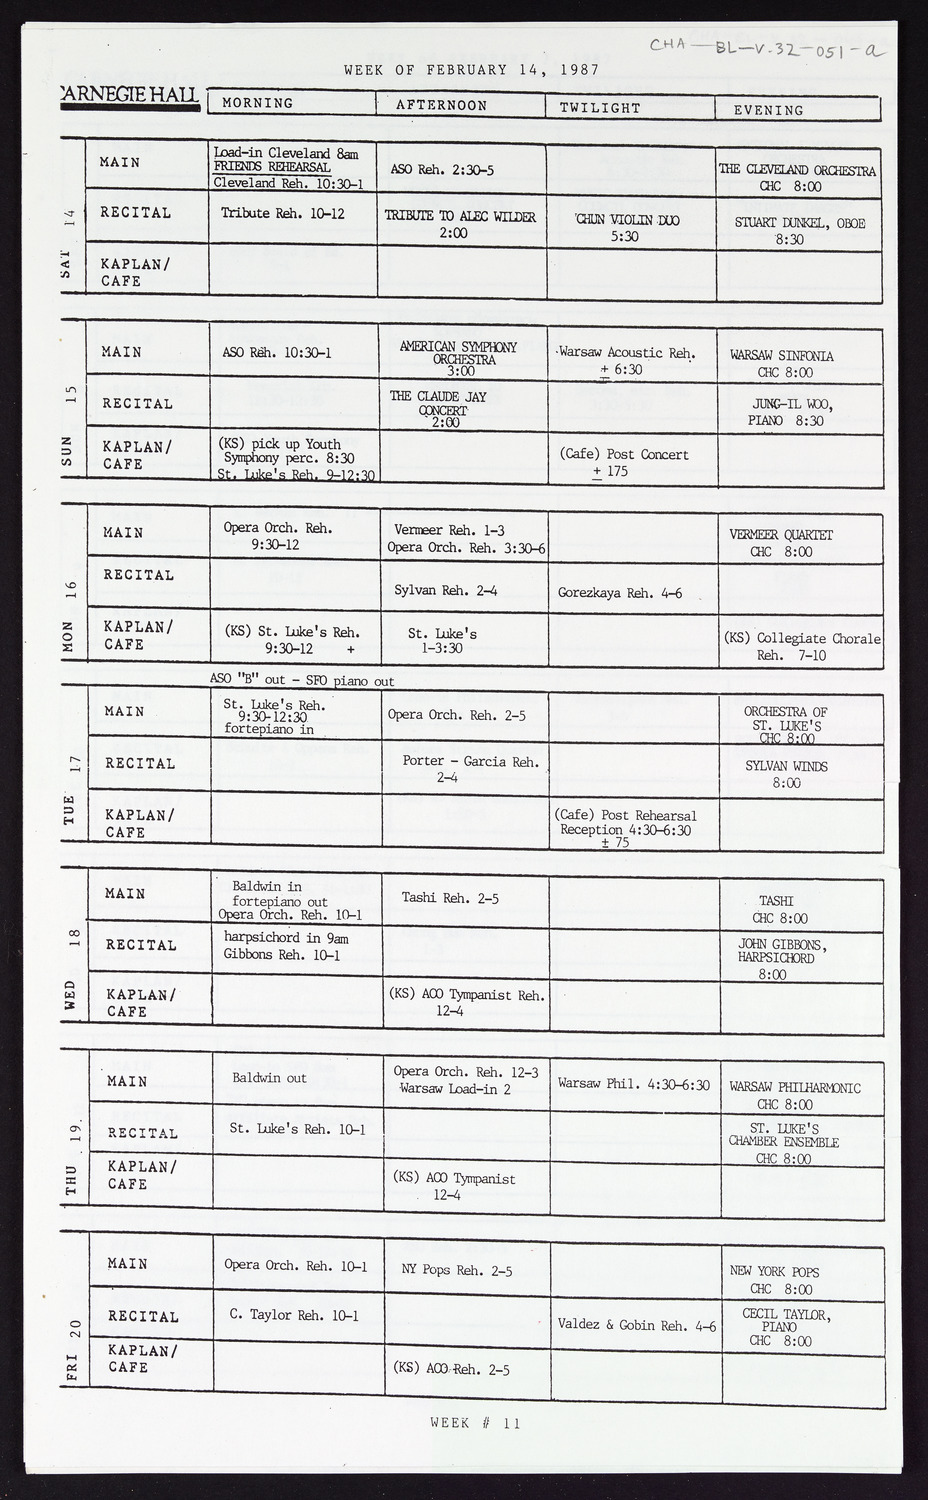 CHA-BL-V.32-051-a
WEEK OF FEBRUARY 14, 1987
CARNEGIE HALL
MORNING
AFTERNOON
TWILIGHT
EVENING
SAT 14
MAIN
Load-in Cleveland 8am
FRIENDS REHEARSAL
Cleveland Reh. 10:30-1
ASO Reh. 2:30-5
THE CLEVELAND ORCHESTRA
CHC 8:00
RECITAL
Tribute Reh. 10-12
TRIBUTE TO ALEC WILDER
2:00
CHUN VIOLIN DUO
5:30
STUART DUNKEL, OBOE
8:30
KAPLAN/
CAFE
SUN 15
MAIN
ASO Reh. 10:30-1
AMERICAN SYMPHONY
ORCHESTRA
3:00
Warsaw Acoustic Reh.
± 6:30
WARSAW SINFONIA
CHC 8:00
RECITAL
THE CLAUDE JAY
CONCERT
2:00
JUNG-IL WOO,
PIANO 8:30
KAPLAN/
CAFE
(KS) pick up Youth
Symphony perc. 8:30
St. Luke's Reh. 9-12:30
(Cafe) Post Concert
± 175
MON 16
MAIN
Opera Orch. Reh.
9:30-12
Vermeer Reh. 1-3
Opera Orch. Reh. 3:30-6
VERMEER QUARTET
CHC 8:00
RECITAL
Sylvan Reh. 2-4
Gorezkaya Reh. 4-6
KAPLAN/
CAFE
(KS) St. Luke's Reh.
9:30-12 +
St. Luke's
1-3:30
(KS) Collegiate Chorale
Reh. 7-10
ASO "B" out - SFO piano out
TUE 17
MAIN
St. Luke's Reh.
9:30-12:30
fortepiano in
Opera Orch. Reh. 2-5
ORCHESTRA OF
ST. LUKE'S
CHC 8:00
RECITAL
Porter - Garcia Reh.
2-4
SYLVAN WINDS
8:00
KAPLAN/
CAFE
(Cafe) Post Rehearsal
Reception 4:30-6:30
± 75
WED 18
MAIN
Baldwin in
fortepiano out
Opera Orch. Reh. 10-1
Tashi Reh. 2-5
TASHI
CHC 8:00
RECITAL
harpsichord in 9am
Gibbons Reh. 10-1
JOHN GIBBONS,
HARPSICHORD
8:00
KAPLAN/
CAFE
(KS) ACO Tympanist Reh.
12-4
THU 19
MAIN
Baldwin out
Opera Orch. Reh. 12-3
Warsaw Load-in 2
Warsaw Phil. 4:30-6:30
WARSAW PHILHARMONIC
CHC 8:00
RECITAL
St. Luke's Reh. 10-1
ST. LUKE'S
CHAMBER ENSEMBLE
CHC 8:00
KAPLAN/
CAFE
(KS) ACO Tympanist
12-4
FRI 20
MAIN
Opera Orch. Reh. 10-1
NY Pops Reh. 2-5
NEW YORK POPS
CHC 8:00
RECITAL
C. Taylor Reh. 10-1
Valdez & Gobin Reh. 4-6
CECIL TAYLOR,
PIANO
CHC 8:00
KAPLAN/
CAFE
(KS) ACO Reh. 2-5
WEEK # 11